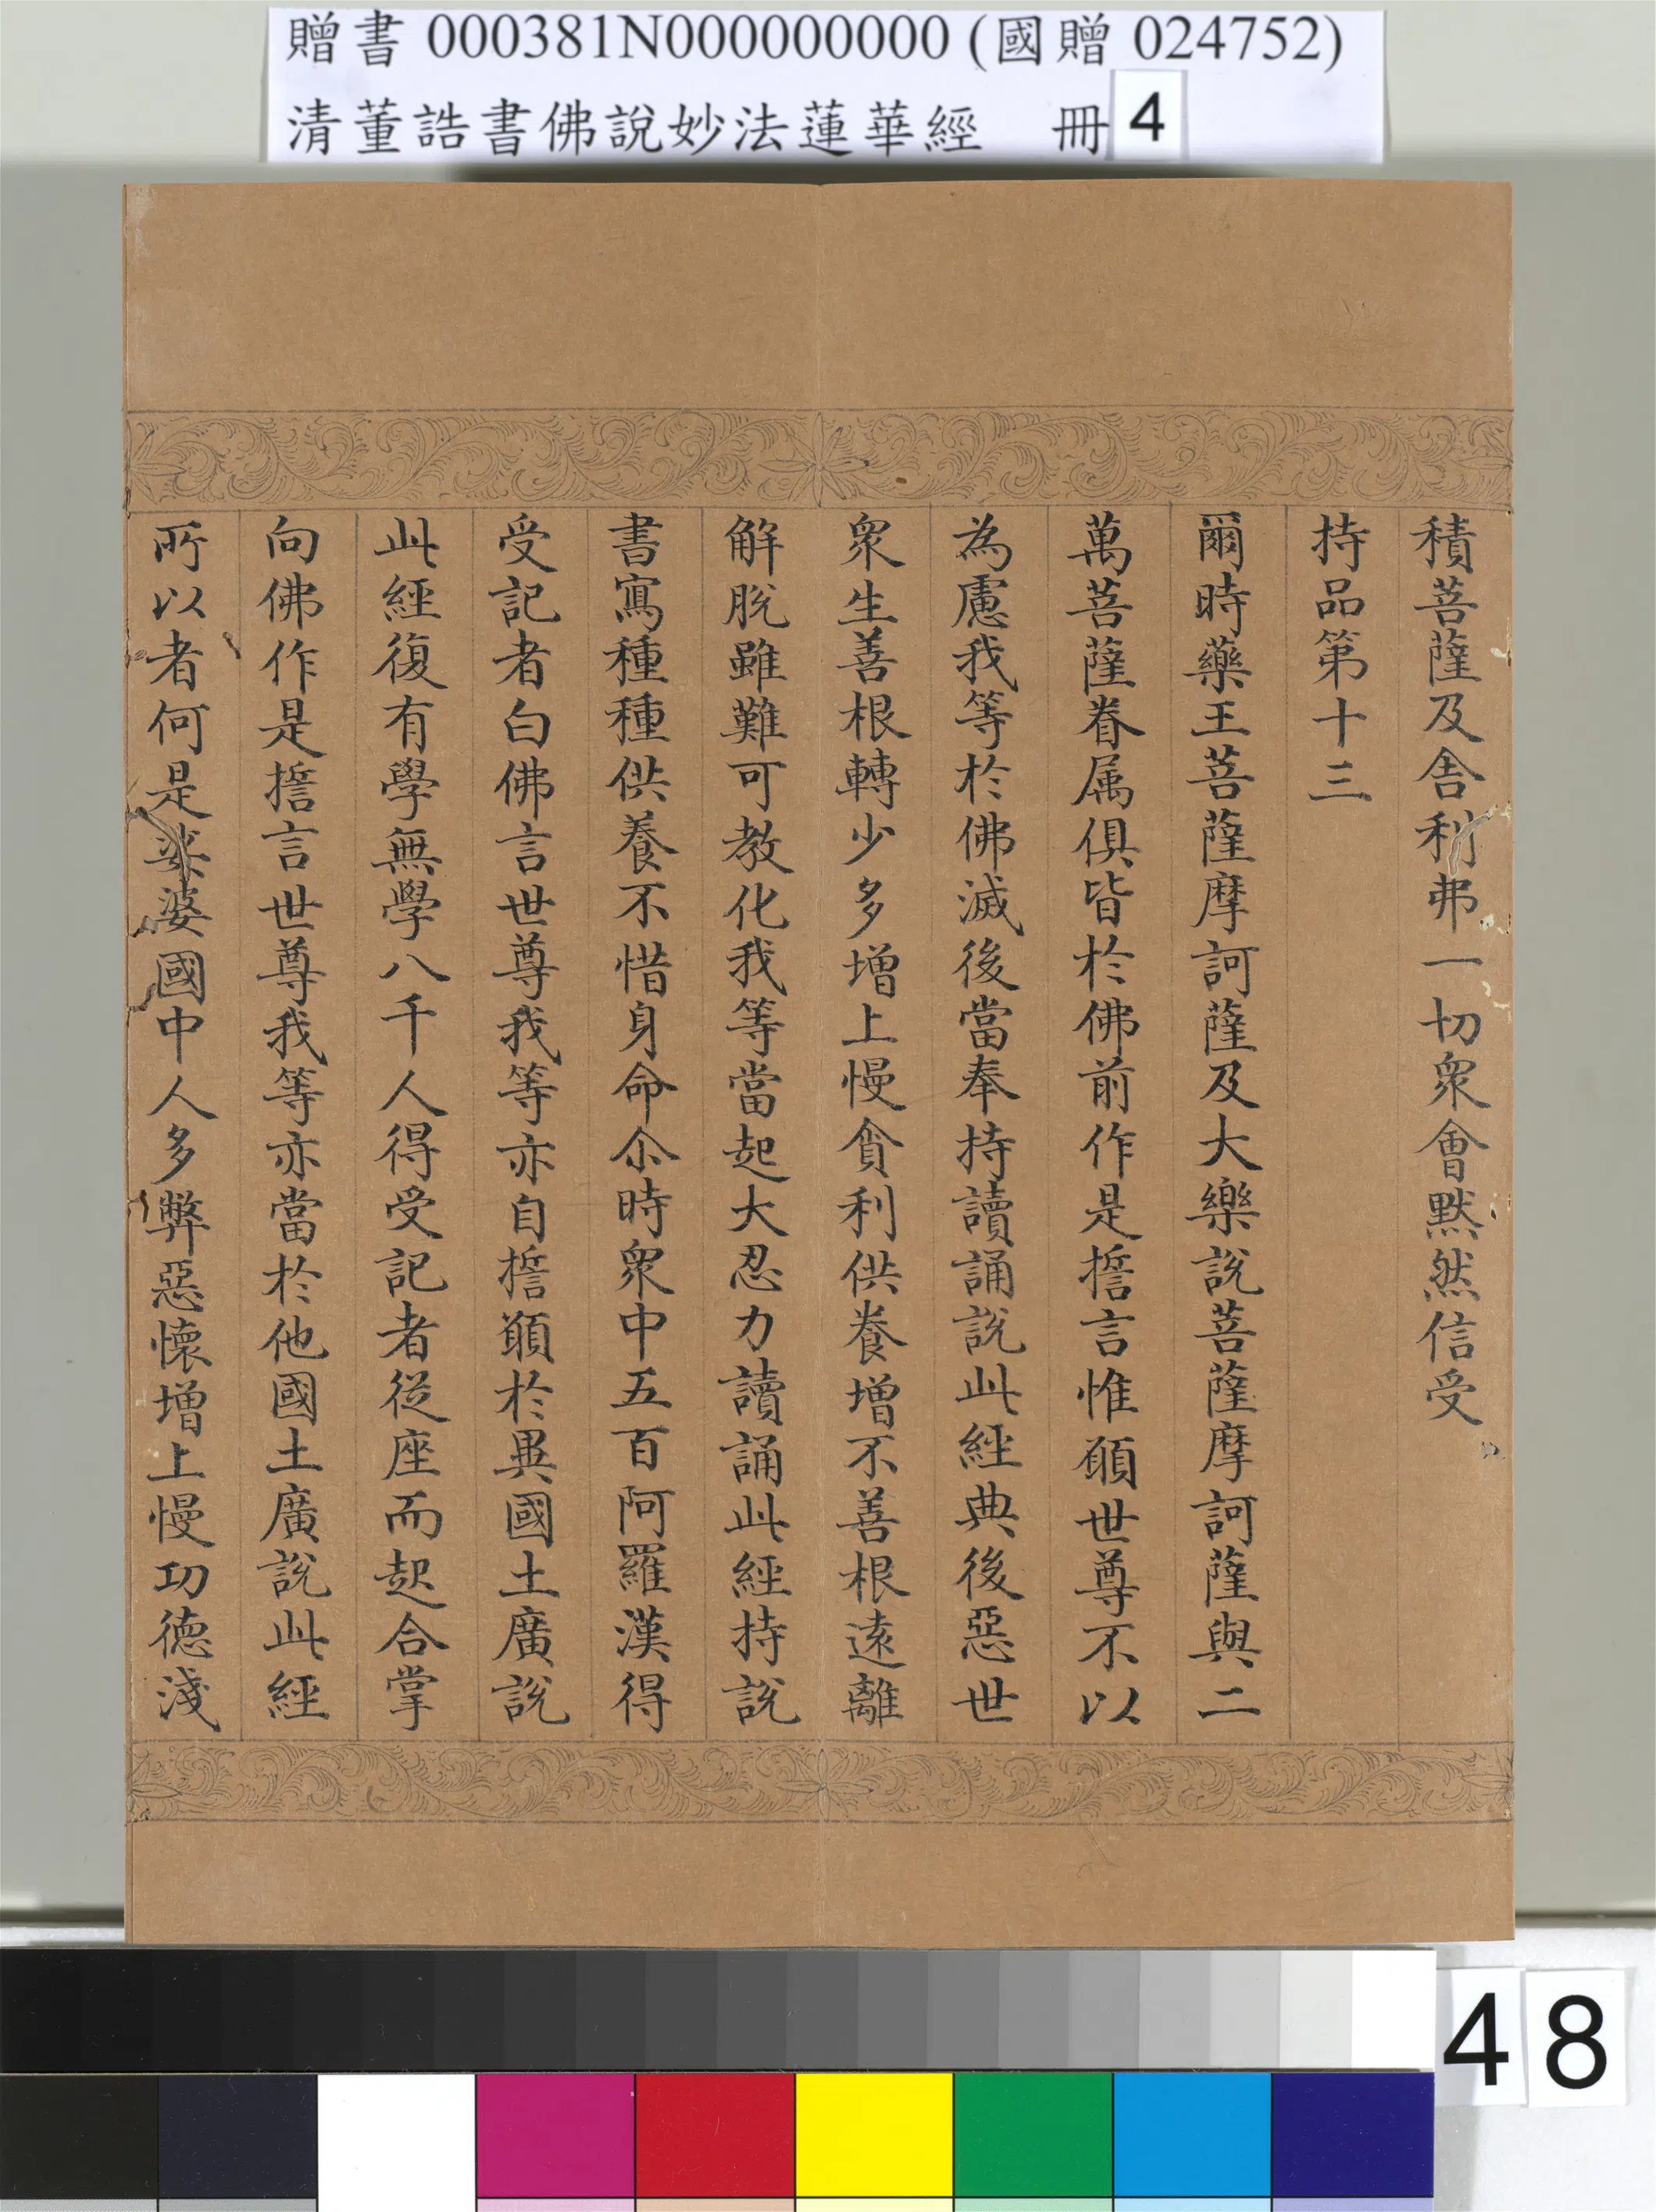 贈書 000381N000000000 (國贈 024752)
清董誥書佛說妙法蓮華經 冊4
積菩薩及舍利弗一切衆會默然信受
持品第十三
爾時藥王菩薩摩訶薩及大樂說菩薩摩訶薩與二
萬菩薩眷属俱皆於佛前作是誓言惟願世尊不以
為慮我等於佛滅後當奉持讀誦說此經典後惡世
衆生善根轉少多增上慢貪利供養增不善根遠離
解脫雖難可教化我等當起大忍力讀誦此經持說
書寫種種供養不惜身命尒時衆中五百阿羅漢得
受記者白佛言世尊我等亦自誓願於異國土廣說
此經復有學無學八千人得受記者從座而起合掌
向佛作是誓言世尊我等亦當於他國土廣說此經
所以者何是娑婆國中人多弊惡懷增上慢功德淺
48